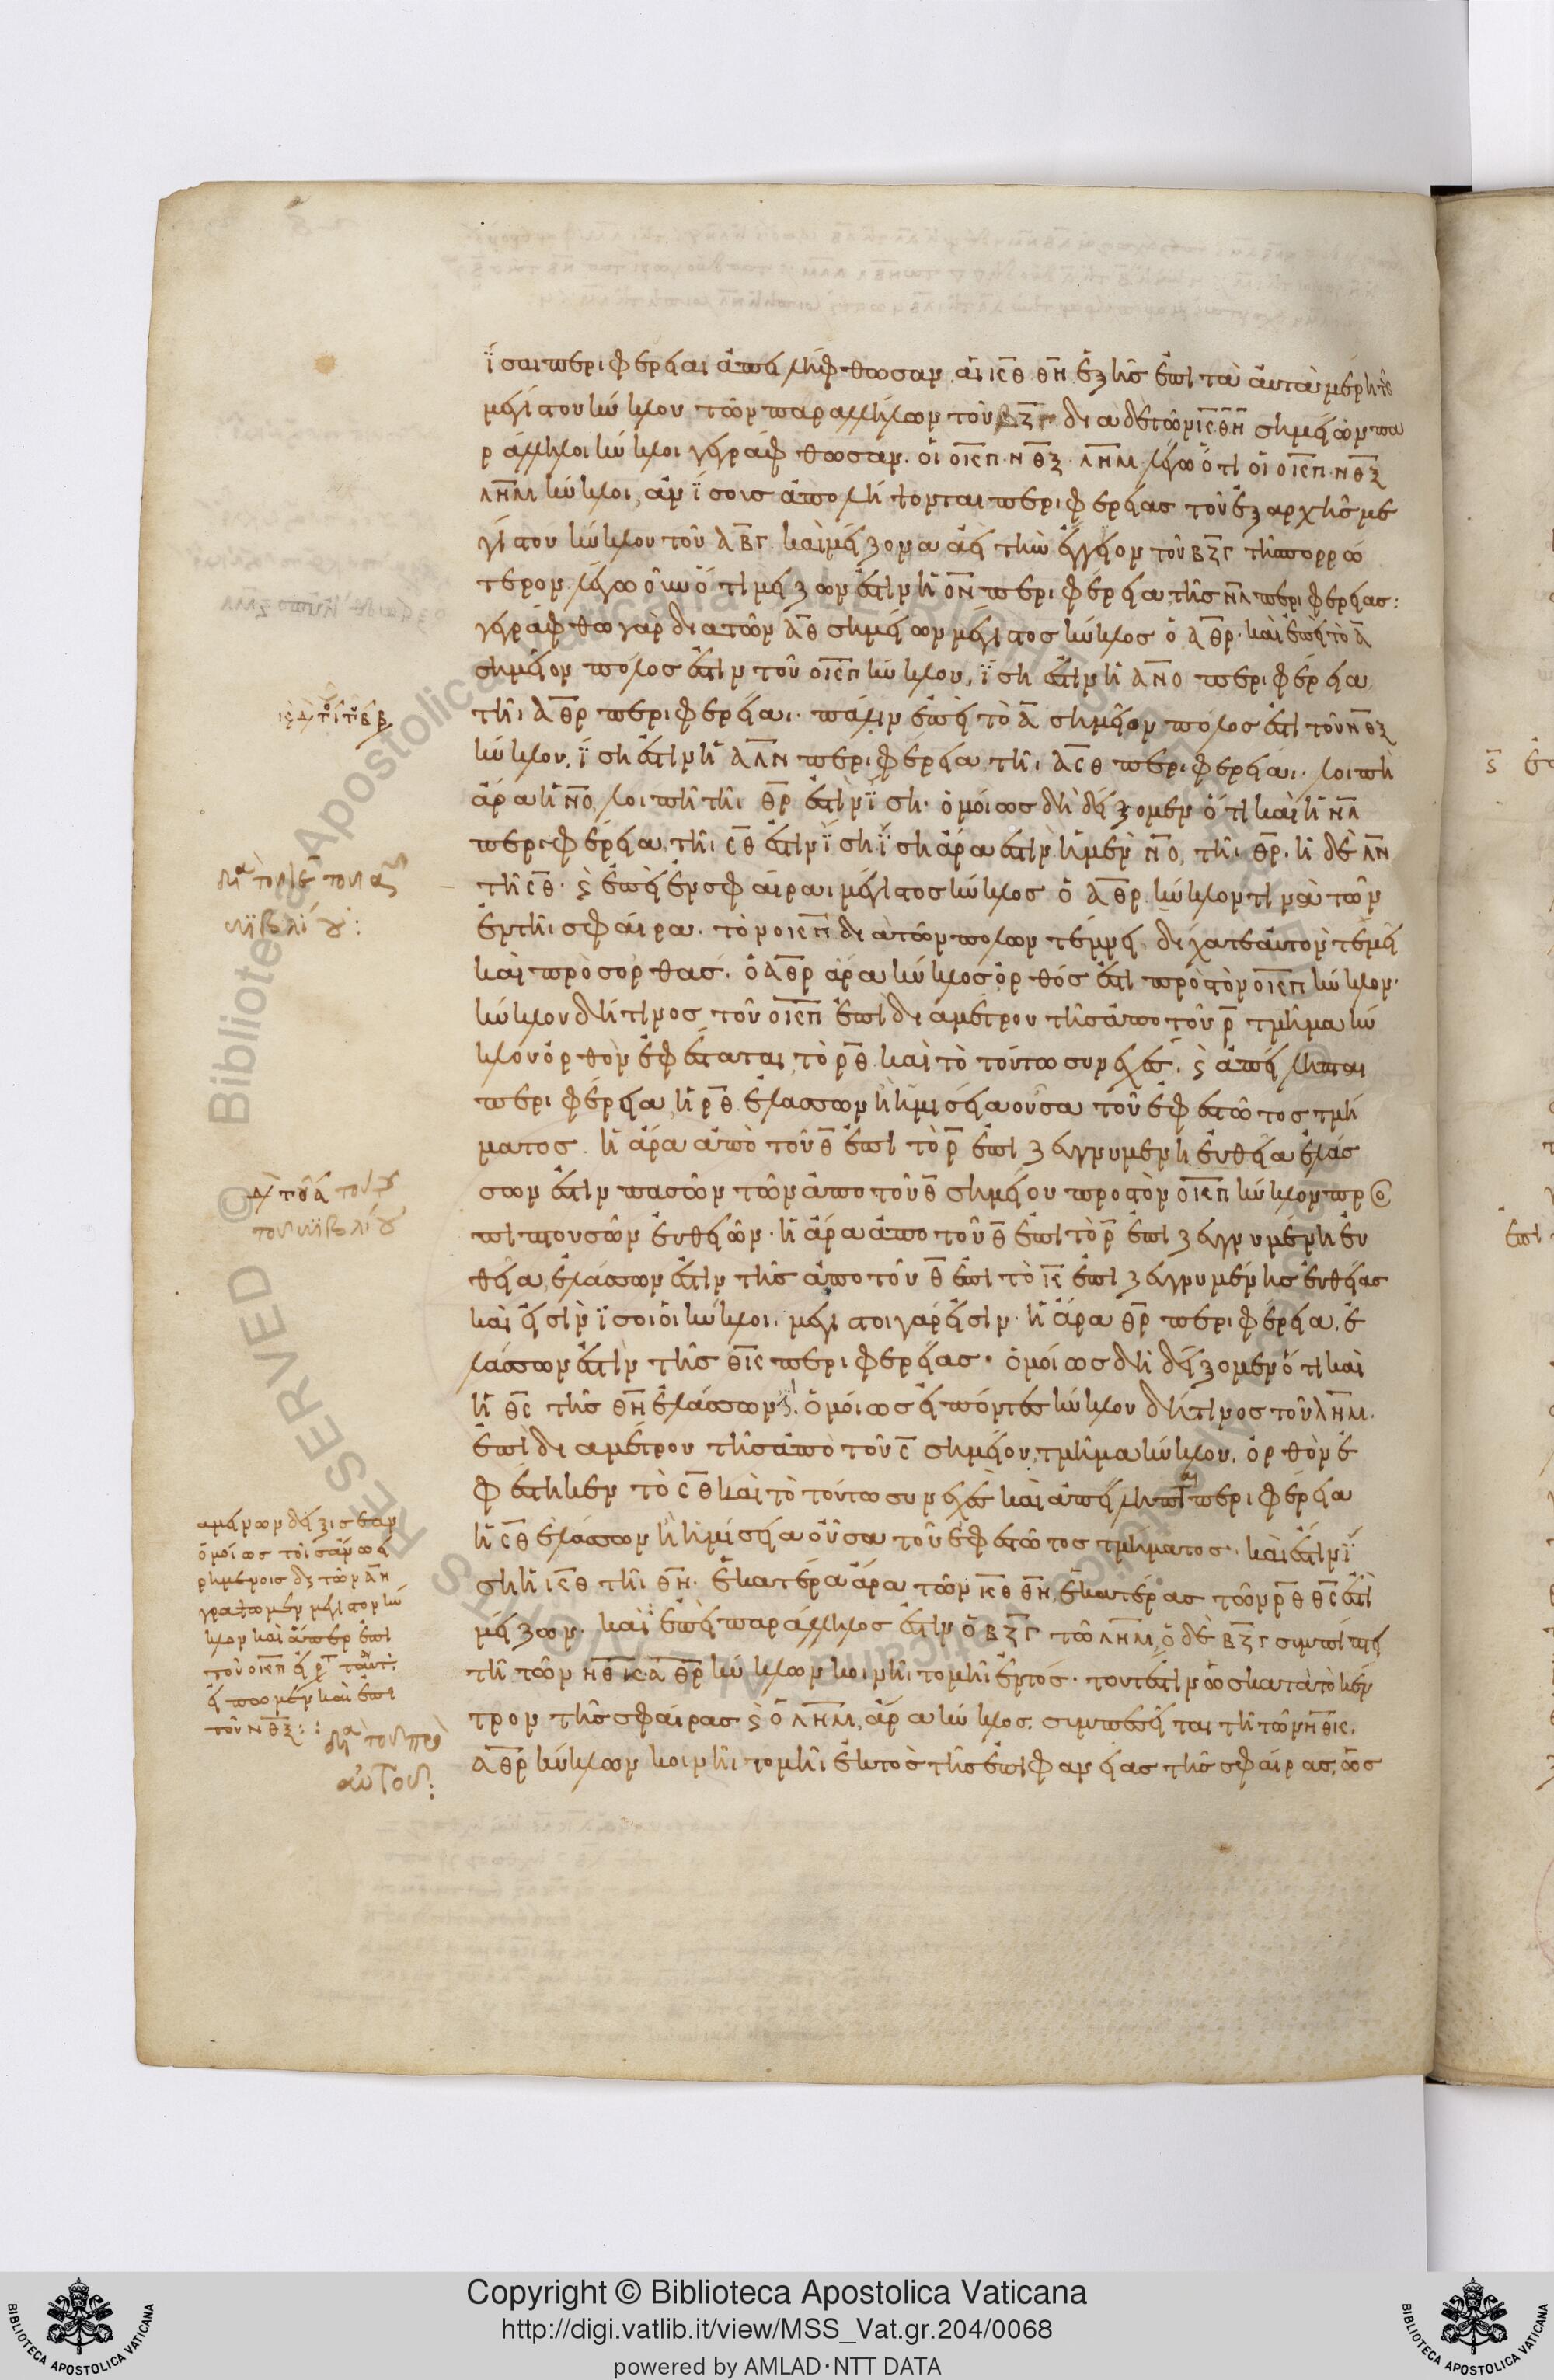 ἴσαι περιφέρειαι ἀπειλήφθωσαν αἱ ΚΘ ΘΗ ἑξῆς ἐπὶ τὰ αὐτὰ μέρη τῆς
μεγίστου κύκλου τῶν παραλλήλων τοῦ ΒΖΓ διὰ δὲ τῶν ΚΘΗ σημείων πα
ράλληλοι κύκλοι γεγράφθωσαν. οἱ ΟΚΠ· ΝΘΞ· ΛΗΜ λέγω ὅτι οἱ ΟΚΠ· ΝΘΞ
ΛΗΜ κύκλοι, ἀνίσους ἀπολήψονται περιφερείας τοῦ ἐξ αρχῆς με
γίστου κύκλου τοῦ ΑΒΓ καὶ μείζονα ἀεὶ τὴν ἔγγειον τοῦ ΒΖΓ τῆς πορρώ
τερον. λέγω οὖν ὅτι μείζων ἐστὶν ἡ ΟΝ περιφέρεια τῆς ΝΛ περιφερείας:
γεγράφθω γὰρ διὰ τῶν ΑΘ σημείων μέγιστος κύκλος ὁ ΑΘΡ· καὶ ἐπεὶ τὸ Α
σημεῖον πόλος ἐστὶν τοῦ ΟΚΠ κύκλου, ἴση ἐστὶν ἡ ΑΝΟ περιφέρεια
τῆι ΑΘΡ περιφερείαι· πάλιν ἐπεὶ τὸ Α σημεῖον πόλος ἐστὶ τοῦ ΝΘΞ
κύκλου, ἴση ἐστὶν ἡ ΑΛΝ περιφέρεια τῆι ΑΣΘ περιφερείαι· λοιπὴ
ἄρα ἡ ΝΟ, λοιπῆ τῆι ΘΡ ἐστὶν ἴση· ὁμοίως δὴ δείξομεν ὅτι καὶ ἡ ΝΛ
περιφέρεια, τῆι ΣΘ ἐστὶν ἴση· ἴση ἄρα ἐστὶν ἡ μὲν ΝΟ, τῆι ΘΡ· ἡ δὲ ΛΝ
τῆ ΣΘ· ϛ ἐπεὶ ἐν σφαίραι μέγιστος κύκλος ὁ ΑΘΡ κύκλον τινὰ τῶν
ἐν τῆι σφαίρα· τὸν ΟΚΠ διὰ τῶν πόλων τέμνει, δίχα τε αὐτὸν τέμει
καὶ πρὸς ὀρθάς. ὁ ΑΘΡ ἄρα κύκλος ὀρθός ἐστι πρὸς τὸν ΟΚΠ κύκλον·
κύκλου δή τινος τοῦ ΟΚΠ ἐπὶ διαμέτρου τῆς ἀπο τοῦ Ρ τμῆμα κύ
κλου ὀρθὸν ἐφέσταται, τὸ ΡΘ καὶ τὸ τούτω συνεχές. ϛ ἀπείληπται
περιφέρεια, ἡ ΡΘ ἐλάσσων ἢ ἡμίσεια οὖσα τοῦ ἐφεστῶτος τμή
ματος. ἡ ἄρα ἀπὸ τοῦ Θ ἐπὶ τὸ Ρ ἐπιζευγνυμένη εὐθεῖα ἐλάσ
σων ἐστὶν πασῶν τῶν ἀπο τοῦ Θ σημείου προς τὸν ΟΚΠ κύκλον προ
πιπτουσῶν εὐθειῶν· ἡ ἄρα ἀπο τοῦ Θ ἐπὶ τὸ Ρ ἐπιζευγνυμένη εὐ
θεῖα, ἐλάσσων ἐστὶν τῆς ἀπο τοῦ Θ ἐπὶ τὸ Κ ἐπιζευγνυμένης εὐθείας
καὶ εἰσὶν ἴσοι οἱ κύκλοι· μέγιστοι γάρ εἰσιν· ἡ ἄρα ΘΡ περιφέρεια, ἐ
λάσσων ἐστὶν τῆς ΘΚ περιφερείας· ὁμοίως δὴ δείξομεν ὅτι καὶ
ἡ ΘΣ τῆς ΘΗ ἐλάσσων. ὁμοίως εἰπόντες κύκλου δή τινος τοῦ ΛΗΜ·
ἐπὶ διαμέτρου τῆς ἀπὸ τοῦ Σ σημείου, τμῆμα κύκλου, ὀρθὸν ἐ
φέστηκεν τὸ ΣΘ καὶ τὸ τούτω συνεχές καὶ ἀπείληπται περιφέρεια
ἡ ΣΘ ἐλάσσων ἢ ἡμίσεια οὖσα τοῦ ἐφεστῶτος τμήματος· καὶ ἐστὶν ἴ
ση ἡ ΚΘ τῆι ΘΗ· ἑκατέρα ἄρα τῶν ΚΘ ΘΗ, ἑκατέρας τῶν ΡΘ ΘΣ ἐστὶ
μείζων· καὶ ἐπεὶ παράλληλος ἐστὶν ὁ ΒΖΓ τῶ ΛΗΜ, ὁ δὲ ΒΖΓ συμπίπτει
τῆ τῶν ΗΘΚ· ΑΘΡ κύκλων κοινῆι τομῆι ἐντός· τουτέστιν ὡς κατὰ τὸ κέν
τρον τῆς σφαίρας ϛ ὁ ΛΗΜ, ἄρα κύκλος, συμπεσεῖται τῆ τῶν ΗΘΚ,
ΑΘΡ κύκλων κοινῆι τομῆι ἐκτὸς τῆς ἐπιφανείας τῆς σφαίρας, ὡς
διὰ τὸ ιε τοῦ α
βιβλίου:
διὰ τοῦ α τοῦ γ
τοῦ βιβλίου
αμεινων δείξις ἐὰν
ὁμοίως τοῖς ἄνω εἰ
ρημένοις διὰ τῶν ΛΗ
γράψωμεν μέγιστον κύ
κλον καὶ ἅπερ ἐπὶ
τοῦ ΟΚΠ
εἴπωμεν καὶ ἐπὶ
τοῦ ΝΘΞ:
διὰ τοῦ πρὸ
αὐτοῦ:
Copyright © Biblioteca Apostolica Vaticana
http://digi.vatlib.it/view/MSS_Vat.gr.204/0068
powered by AMLAD·NTT DATA
BIBLIOTECA APOSTOLICA VATICANA
BIBLIOTECA APOSTOLICA VATICANA